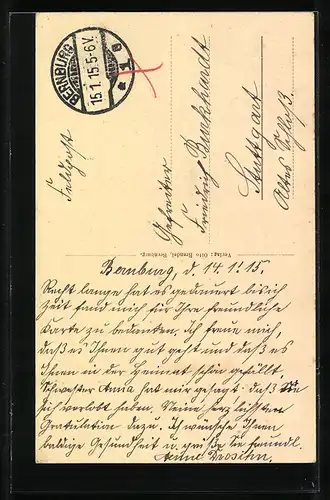 BERNBURG
15.1.15.5-6V.
* 1 a
Feldpost
Gefreiter
Friedrich Burkhardt
Stuttgart
Altes Schloß.
Verlag: Otto Brendel, Bernburg.
Bernburg, d. 14.1.15.
Recht lange hat es gedauert bis ich
Zeit fand mich für Ihre freundliche
Karte zu bedanken. Ich freue mich,
daß es Ihnen gut geht und daß es
Ihnen in der Heimat schön gefällt.
Schwester Anna hat mir gesagt: daß Sie
sich verlobt haben. Meine herzlichsten
Gratulation dazu. Ich wünsche Ihnen
baldige Gesundheit u. grüße Sie freundl.
Anna